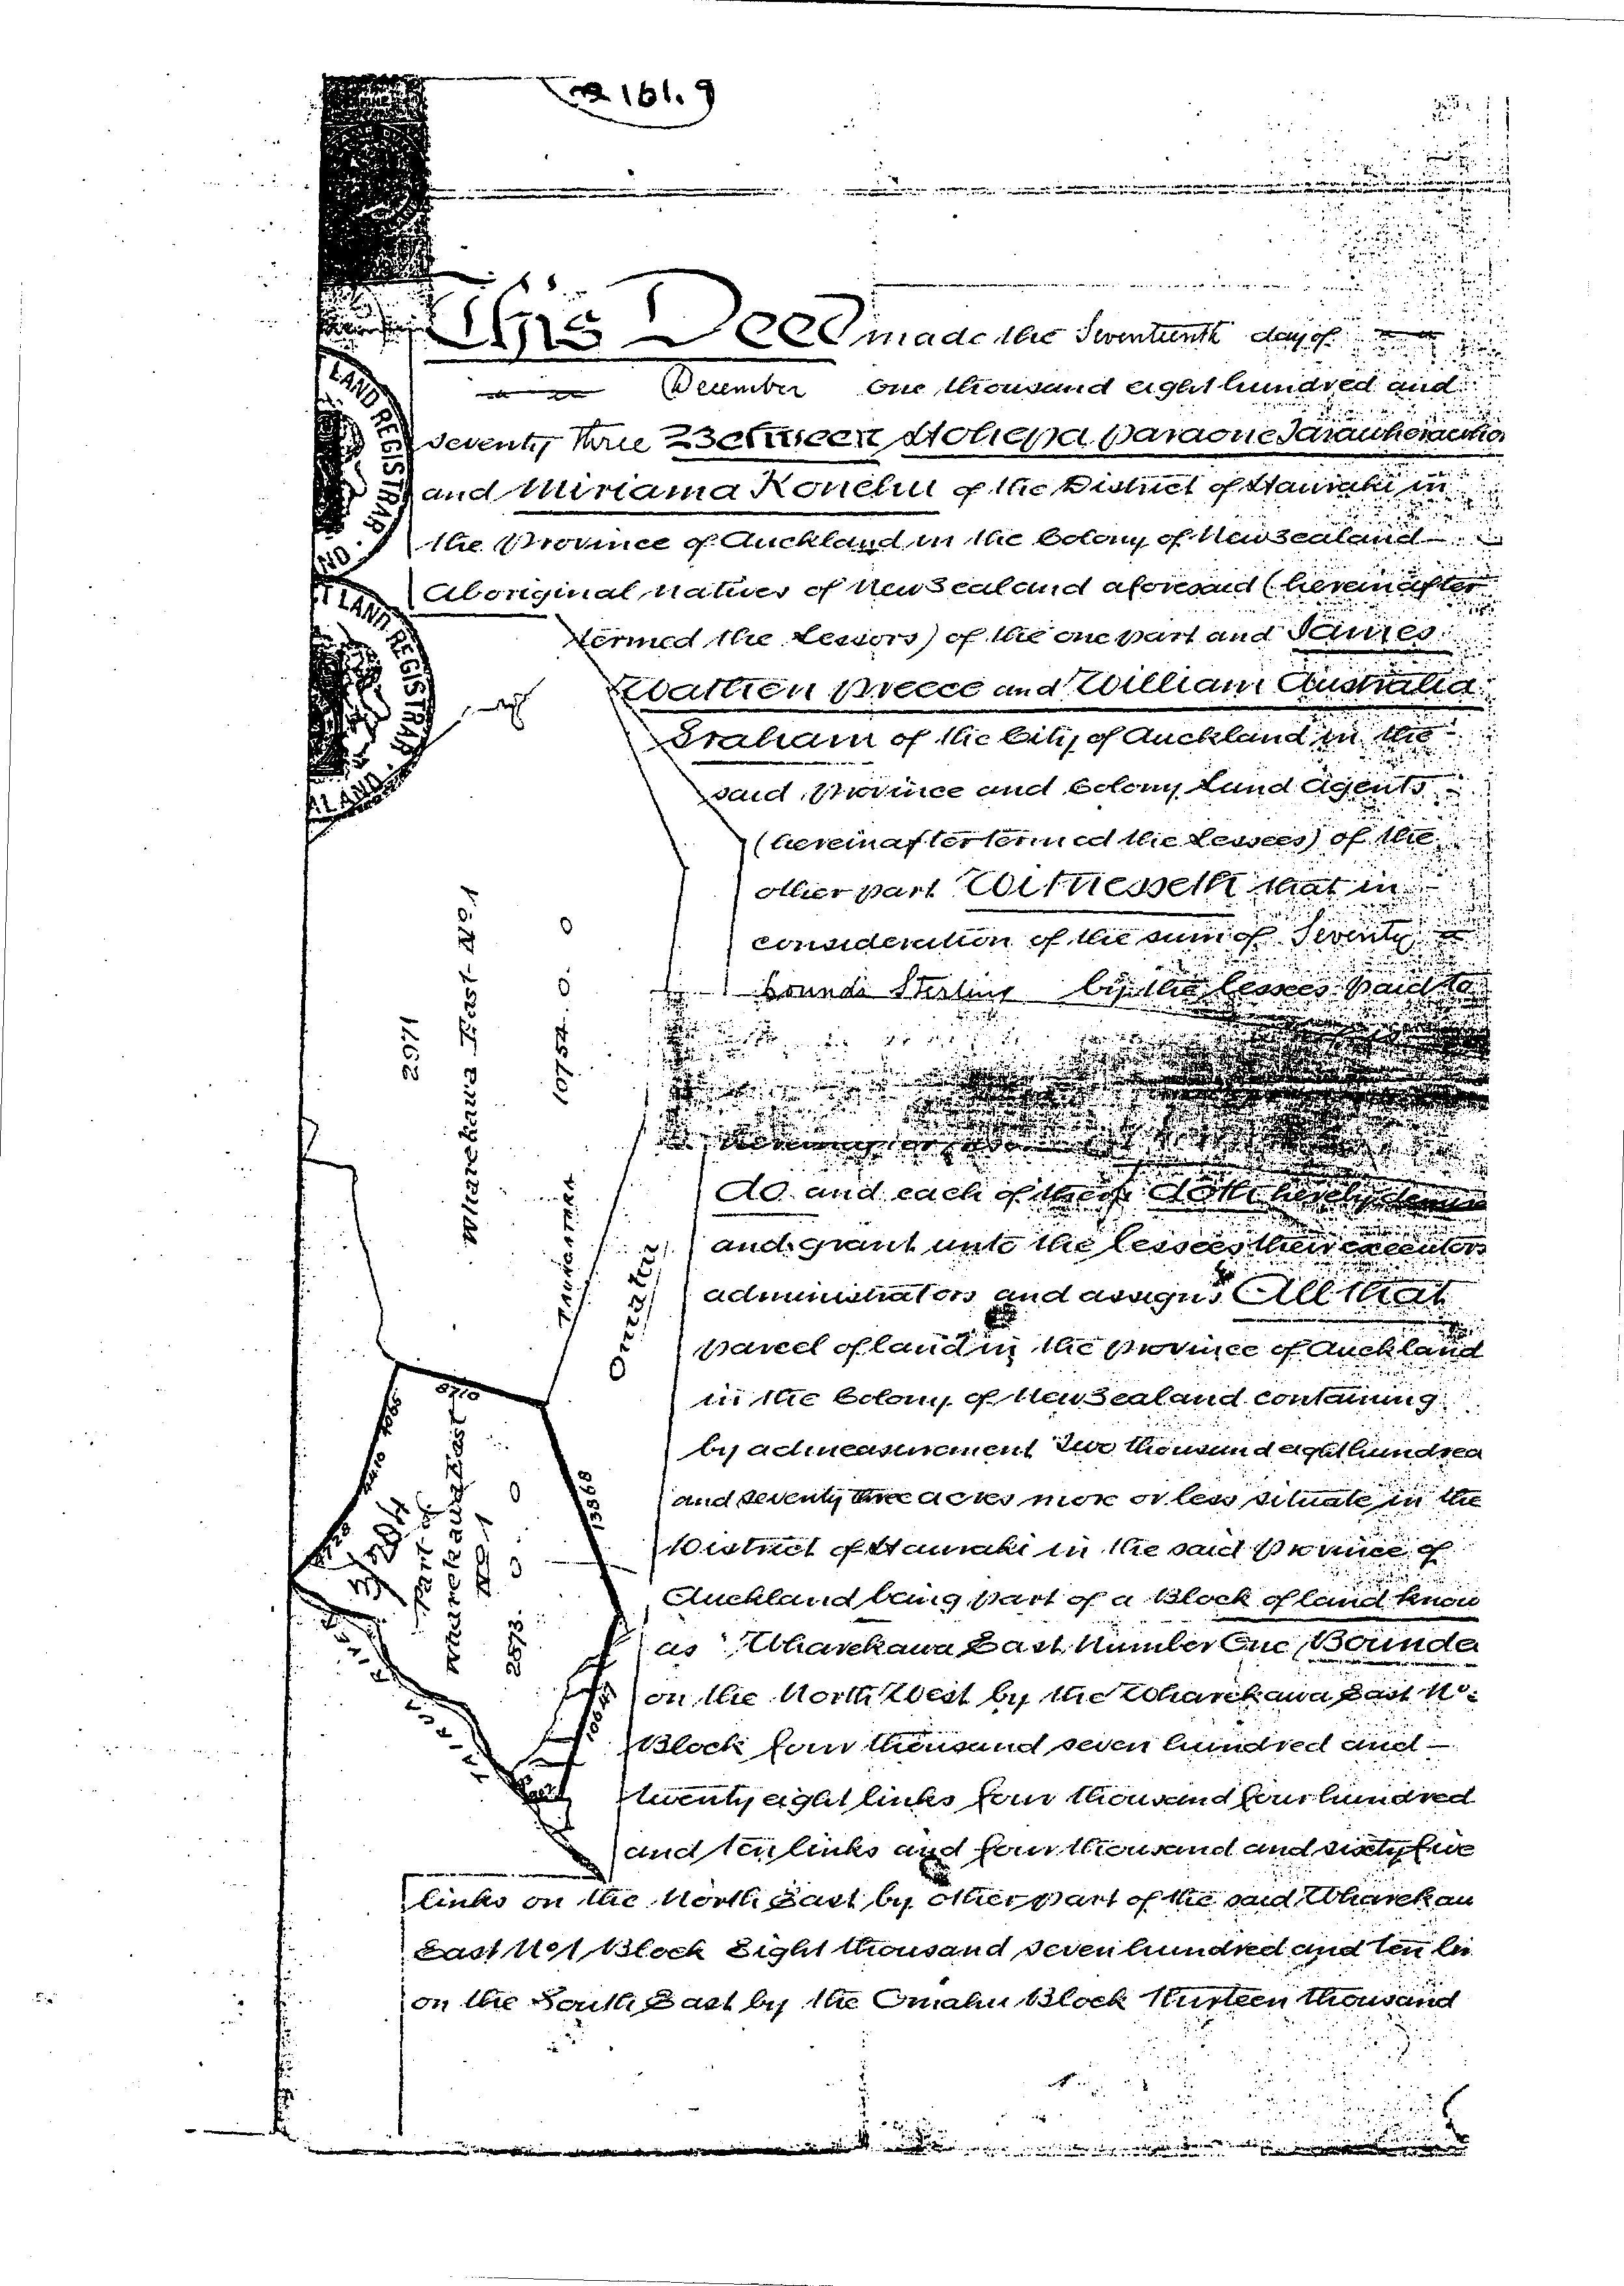 161.9
This Deed made the Seventeenth day of
December one thousand eight hundred and
seventy three Between Hohepa Paraone
and Miriama Konehu of the District of Hauraki in
the Province of Auckland in the Colony of New Zealand
Aboriginal Natives of New Zealand aforesaid (hereinafter
termed the Lessors) of the one part and James
Wathen Preece and William Australia
Graham of the City of Auckland in the
said Province and Colony Land Agents
(hereinafter termed the Lessees) of the
other part Witnesseth that in
consideration of the sum of Seventy
pounds Sterling by the lessees paid to
do and each of them doth hereby demise
and grant unto the lessees their executors
administrators and assigns All that
parcel of land in the Province of Auckland
in the Colony of New Zealand containing
by admeasurement Two thousand eight hundred
and seventy three acres more or less situate in the
District of Hauraki in the said Province of
Auckland being part of a Block of land know
as Wharekawa East Number One Bounde
on the North West by the Wharekawa East No
Block four thousand seven hundred and
twenty eight links four thousand four hundred
and ten links and four thousand and sixty five
links on the North East by other part of the said Wharekau
East No 1 Block Eight thousand seven hundred and ten li
on the South East by the Omahu Block Thirteen thousand
LAND REGISTRAR
LAND REGISTRAR
2971
Wharekawa East No. 1
10754. 0. 0
Omahu
8710
4065
4410
4728
13868
Part of
Wharekawa East
No 1
2873. 0. 0
RIVER